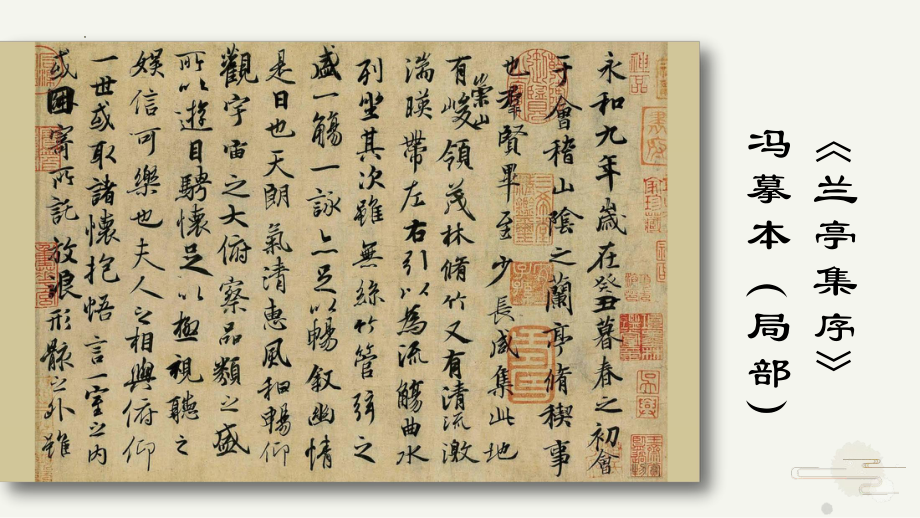 《兰亭集序》
冯摹本（局部）
永和九年歲在癸丑暮春之初會
于會稽山陰之蘭亭脩稧事
也羣賢畢至少長咸集此地
有崇山峻領茂林脩竹又有清流激
湍暎帶左右引以為流觴曲水
列坐其次雖無絲竹管弦之
盛一觴一詠亦足以暢敘幽情
是日也天朗氣清惠風和暢仰
觀宇宙之大俯察品類之盛
所以遊目騁懷足以極視聽之
娛信可樂也夫人之相與俯仰
一世或取諸懷抱悟言一室之內
或因寄所託放浪形骸之外雖